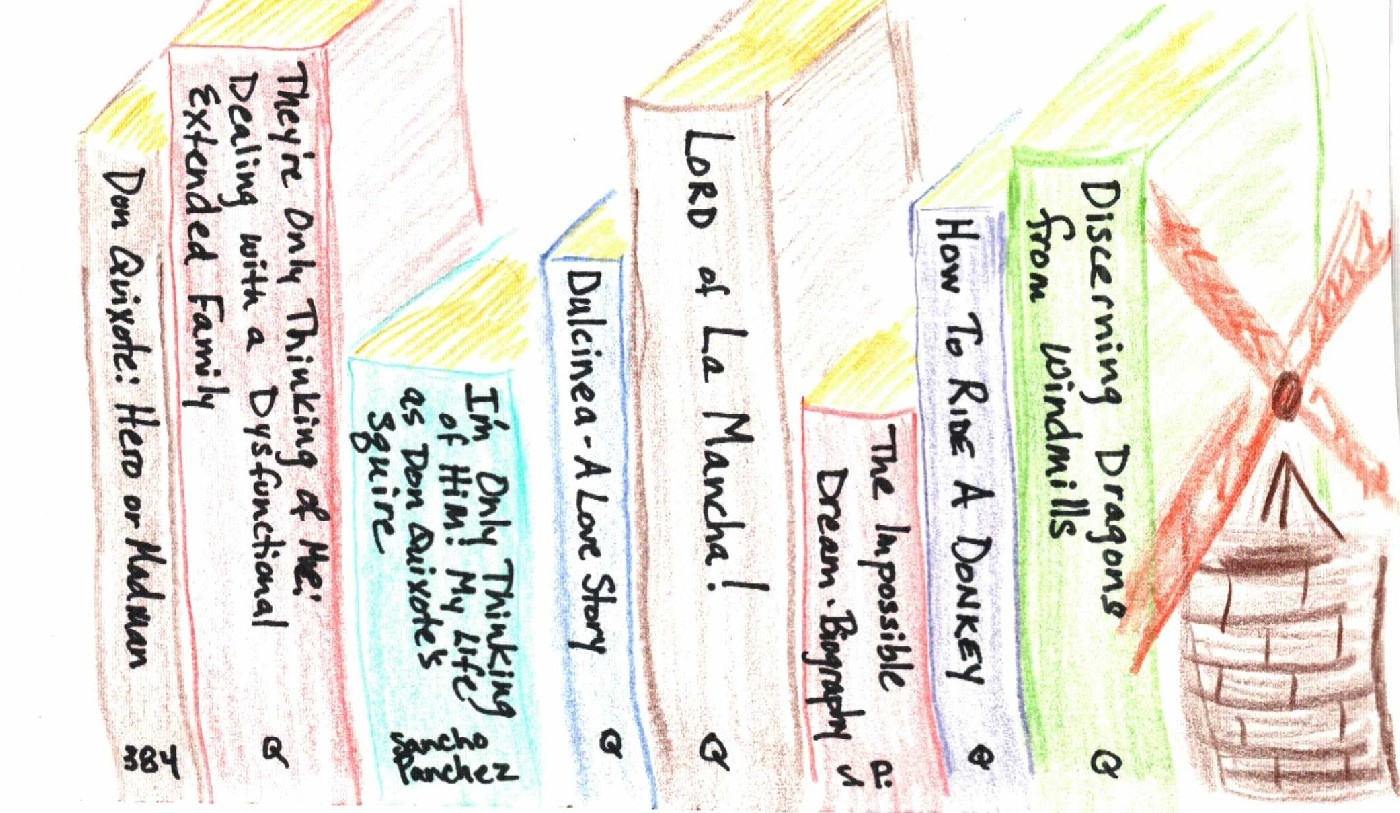 Don Quixote: Hero or Madman
384
They're Only Thinking of Me:
Dealing with a Dysfunctional
Extended Family
Q
I'm Only Thinking
of Him: My Life
as Don Quixote's
Squire
Sancho
Panchez
Dulcinea - A Love Story
Q
LORD of La Mancha!
Q
The Impossible
Dream - Biography
P.
S
HOW TO RIDE A DONKEY
Q
Discerning Dragons
from Windmills
Q